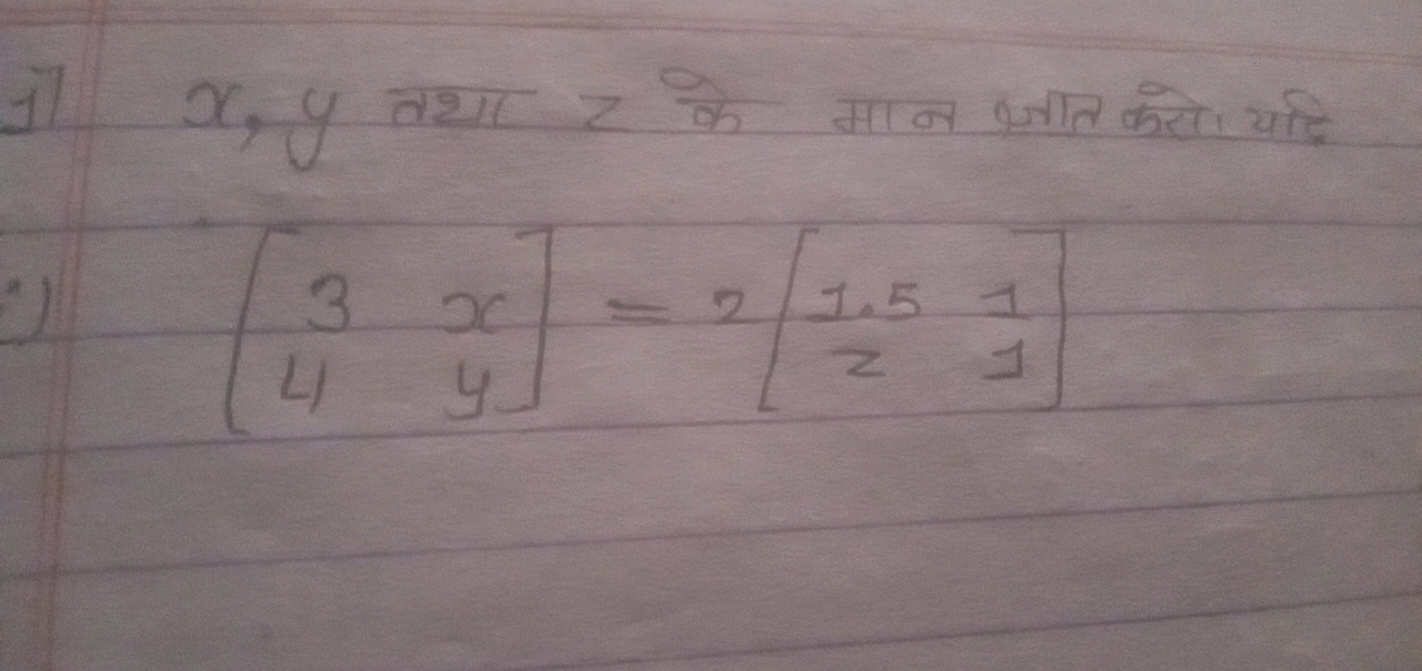 1) x, y तथा z के मान ज्ञात करो। यदि
[3 x] = 2 [1.5 1]
[4 y] [z 1]